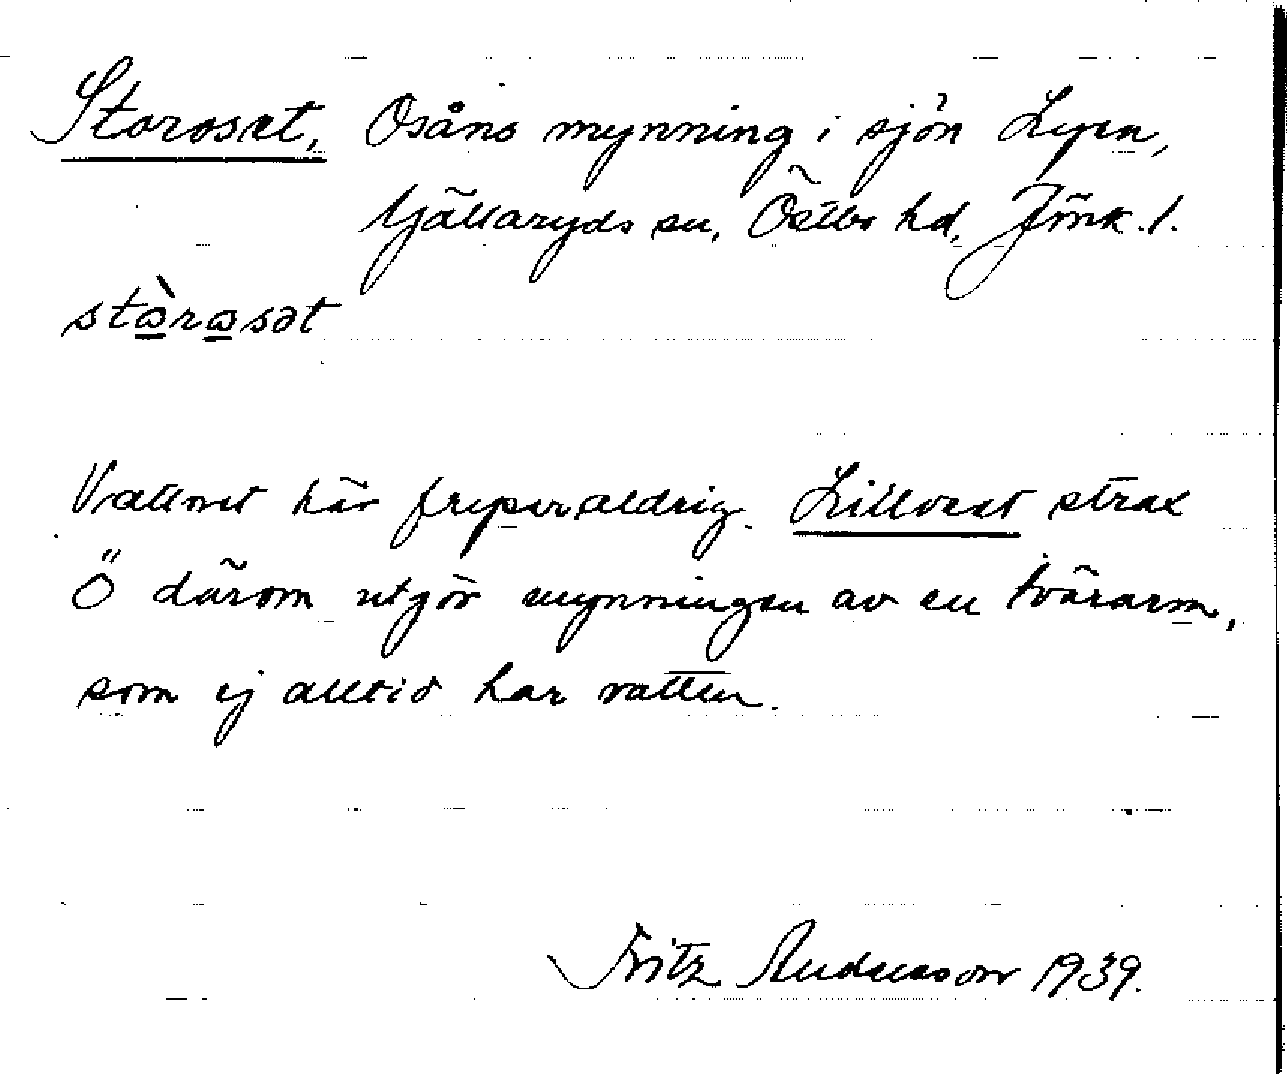 Storoset, Osåns mynning i sjön Lyen,
Kjällaryds sn, Östbo hd, Jönk. l.
stòrosət
Vattnet här fryser aldrig. Lilloset strax
Ö därom utgör mynningen av en tvärarm,
som ej alltid har vatten.
Fritz Andersson 1939.